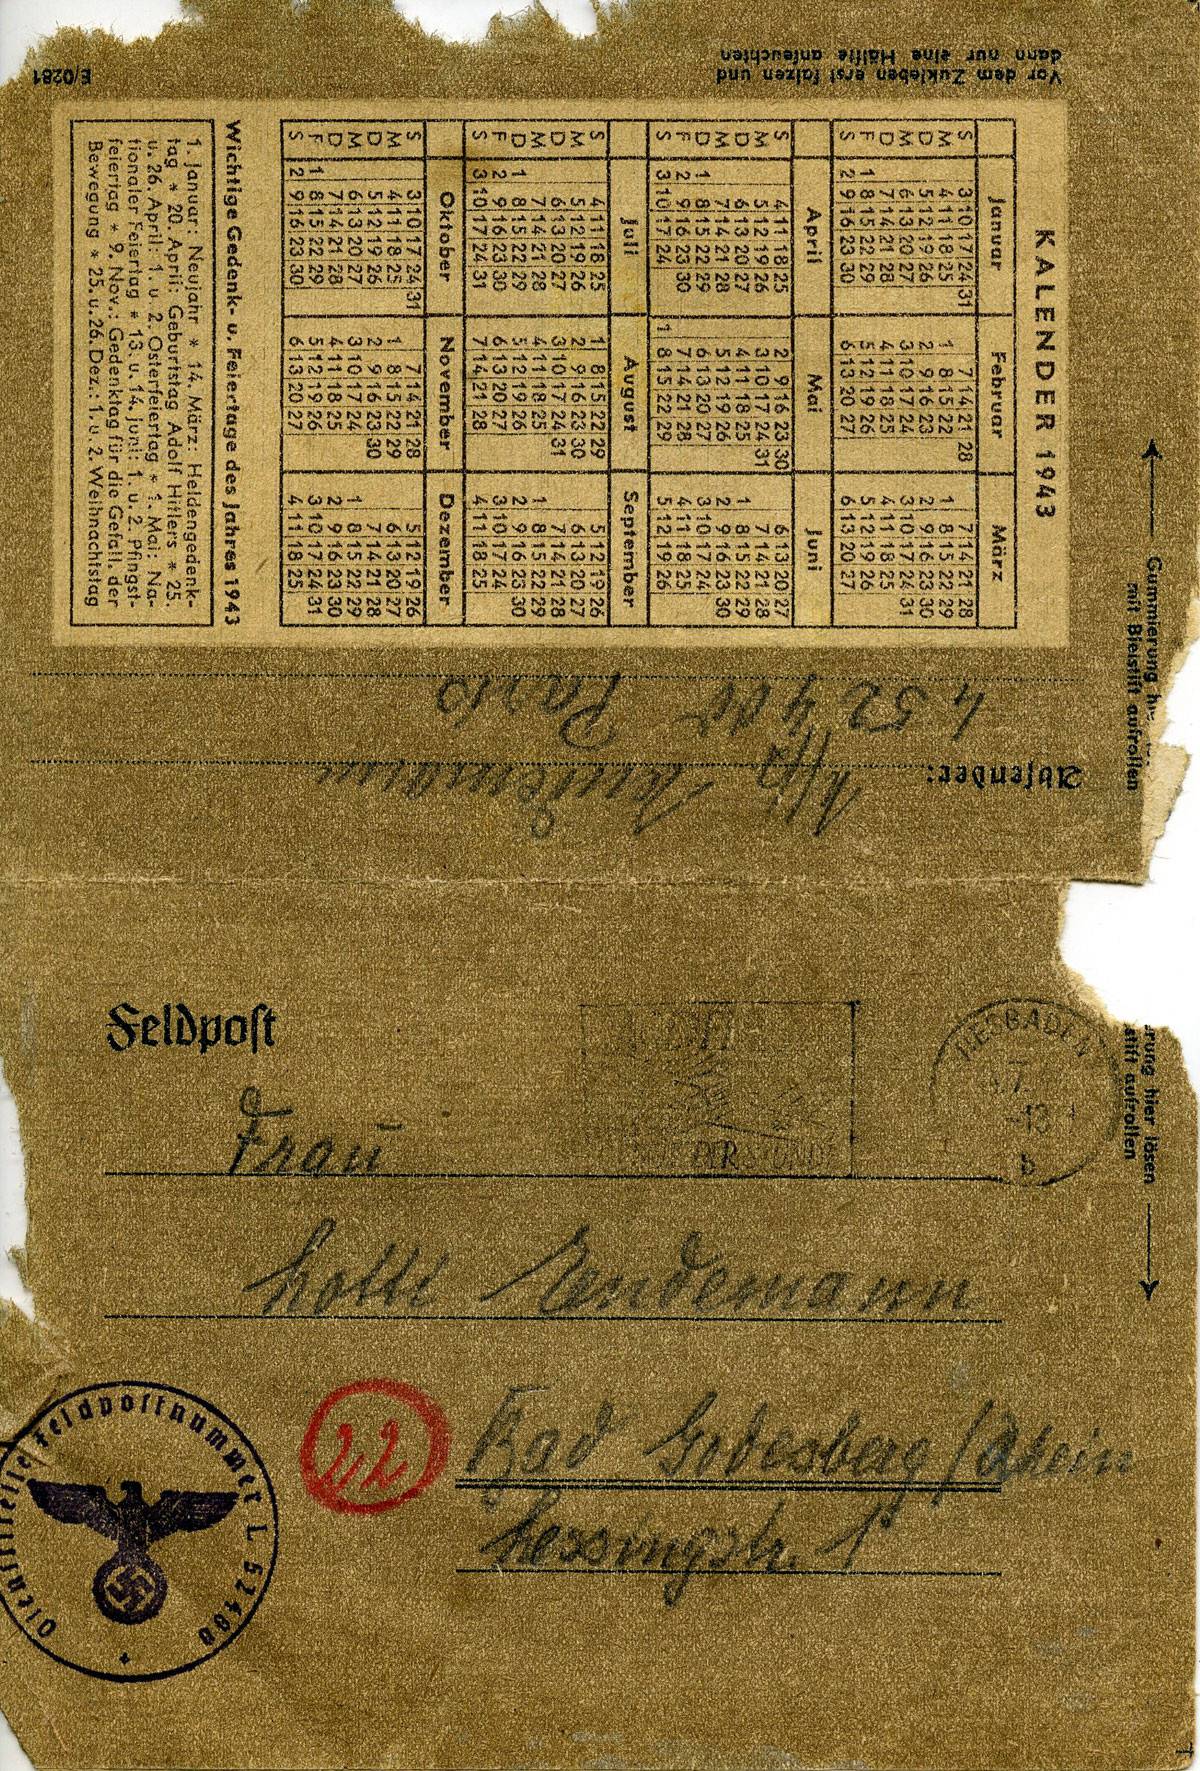 E/0281
Vor dem Zukleben erst falzen und
dann nur eine Hälfte anfeuchten
KALENDER 1943
Januar Februar März
S 3 10 17 24 31 7 14 21 28 7 14 21 28
M 4 11 18 25 1 8 15 22 1 8 15 22 29
D 5 12 19 26 2 9 16 23 2 9 16 23 30
M 6 13 20 27 3 10 17 24 3 10 17 24 31
D 7 14 21 28 4 11 18 25 4 11 18 25
F 1 8 15 22 29 5 12 19 26 5 12 19 26
S 2 9 16 23 30 6 13 20 27 6 13 20 27
April Mai Juni
S 4 11 18 25 2 9 16 23 30 6 13 20 27
M 5 12 19 26 3 10 17 24 31 7 14 21 28
D 6 13 20 27 4 11 18 25 1 8 15 22 29
M 7 14 21 28 5 12 19 26 2 9 16 23 30
D 1 8 15 22 29 6 13 20 27 3 10 17 24
F 2 9 16 23 30 7 14 21 28 4 11 18 25
S 3 10 17 24 1 8 15 22 29 5 12 19 26
Juli August September
S 4 11 18 25 1 8 15 22 29 5 12 19 26
M 5 12 19 26 2 9 16 23 30 6 13 20 27
D 6 13 20 27 3 10 17 24 31 7 14 21 28
M 7 14 21 28 4 11 18 25 1 8 15 22 29
D 1 8 15 22 29 5 12 19 26 2 9 16 23 30
F 2 9 16 23 30 6 13 20 27 3 10 17 24
S 3 10 17 24 31 7 14 21 28 4 11 18 25
Oktober November Dezember
S 3 10 17 24 31 7 14 21 28 5 12 19 26
M 4 11 18 25 1 8 15 22 29 6 13 20 27
D 5 12 19 26 2 9 16 23 30 7 14 21 28
M 6 13 20 27 3 10 17 24 1 8 15 22 29
D 7 14 21 28 4 11 18 25 2 9 16 23 30
F 1 8 15 22 29 5 12 19 26 3 10 17 24 31
S 2 9 16 23 30 6 13 20 27 4 11 18 25
Wichtige Gedenk- u. Feiertage des Jahres 1943
1. Januar: Neujahr * 14. März: Heldengedenk-
tag * 20. April: Geburtstag Adolf Hitlers * 25.
u. 26. April: 1. u. 2. Osterfeiertag * 1. Mai: Na-
tionaler Feiertag * 13. u. 14. Juni: 1. u. 2. Pfingst-
feiertag * 9. Nov.: Gedenktag für die Gefall. der
Bewegung * 25. u. 26. Dez.: 1. u. 2. Weihnachtstag
Gummierung
mit Bleistift aufrollen
Absender: Uffz Endemann
L 52400 Paris
Feldpost
WIESBADEN
7.
-13
b
DER STUNDE
hier lösen
aufrollen
Frau
Lotti Endemann
22
Bad Godesberg/Rhein
Lessingstr. 1
Dienststelle Feldpostnummer L 52400